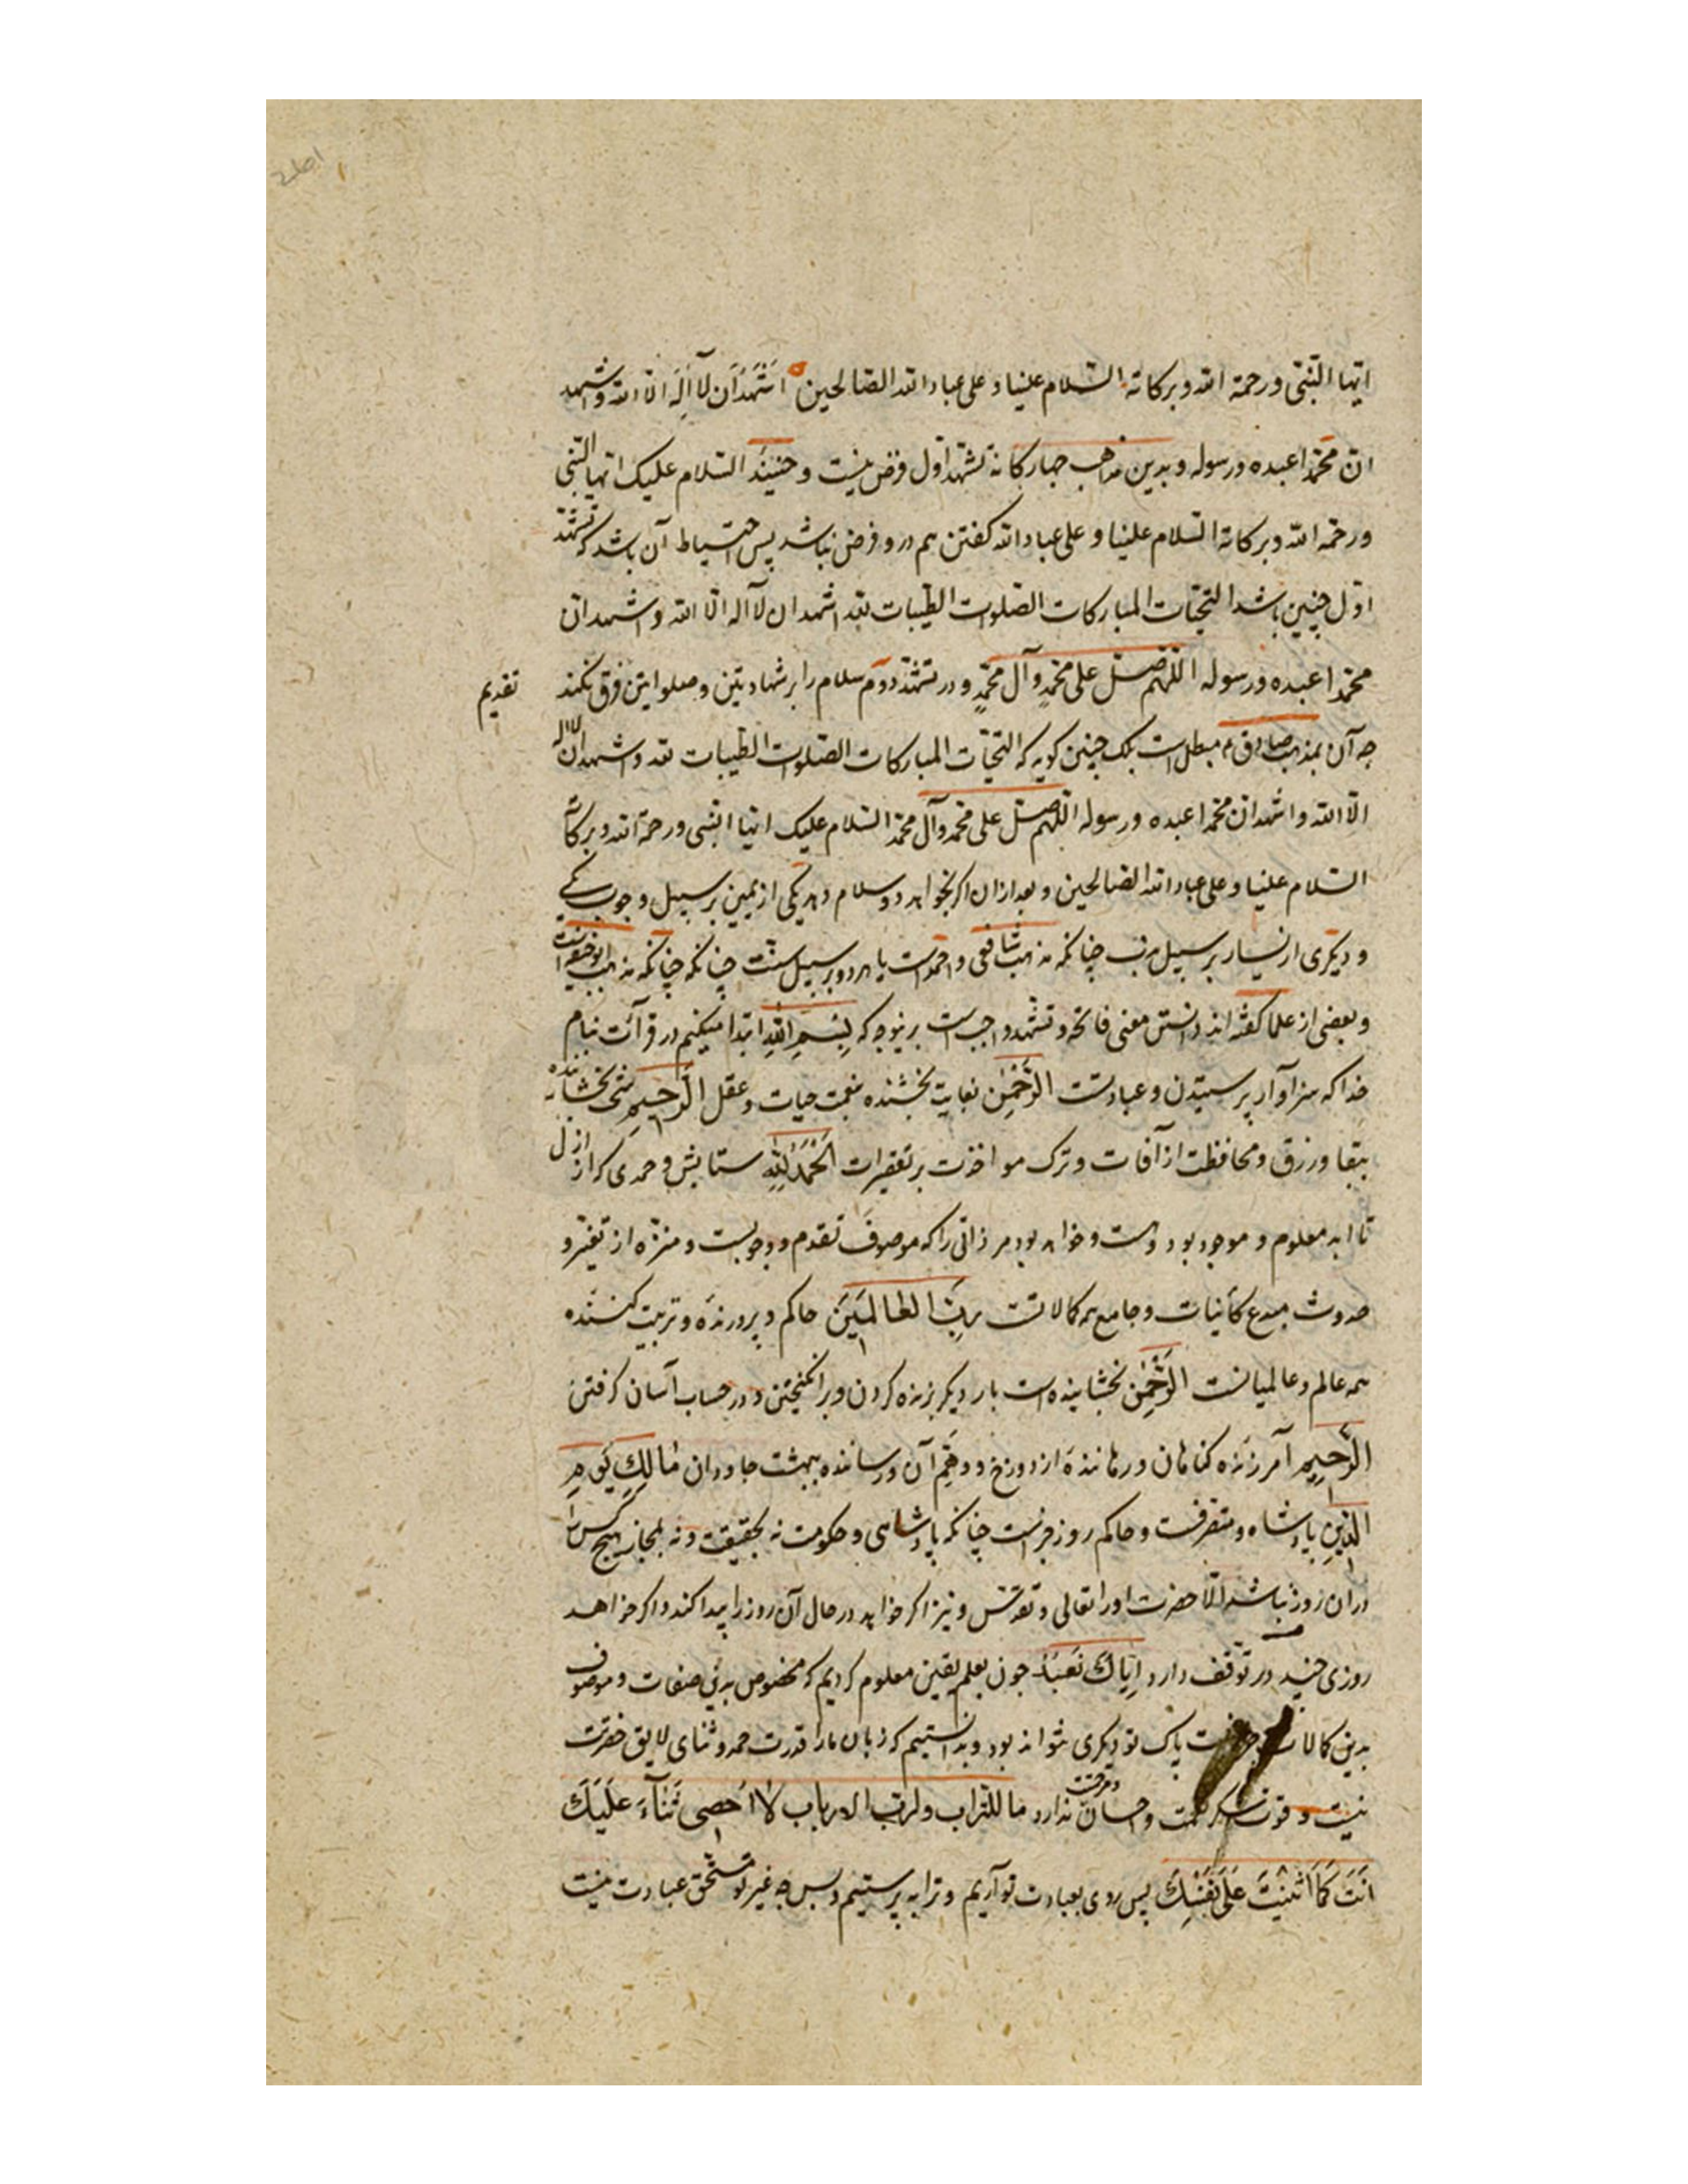 ایها النبی ورحمة الله وبرکاته السلام علینا وعلی عباد الله الصالحین اَشْهَدُ اَن لآ اِلٰهَ الا الله واشهد
ان محمّدا عبده ورسوله وبدین مذاهب چهارکانه تشهد اول فرض نیست و السلام علیک ایها النبی
ورحمة الله وبرکاته السلام علینا وعلی عباد الله کفتن هم درو فرض نباشد پس احتیاط آن باشد که تشهد
اول چنین باشد التحیّات المبارکات الصلوات الطیبات لله اشهد ان لآ اله الا الله واشهد ان
محمّدا عبده ورسوله اللّهم صلّ علی محمّدٍ وآل محمّدٍ ودر تشهّد دوم سلام را بر شهادتین وصلوا این فرق نکند
تقدیم
چه آن بمذهب صادق م مبطل است بلک چنین کوید که التحیّات المبارکات الصلوات الطیبات لله واشهد ان لا اله
الّا الله واشهد ان محمّدا عبده ورسوله اللّهم صلّ علی محمّد وآل محمّد السلام علیک ایها النبی ورحمة الله وبرکاته
السلام علینا وعلی عباد الله الصالحین وبعد ازان اکر بخواهد دو سلام دهد یکی از یمین بر سبیل وجوب
ودیکری از یسار بر سبیل ندب چنانکه مذهب شافعی واحمدست یا هردو بر سبیل سنّت چنانکه چنانکه مذهب ابوحنیفه است
وبعضی از علما کفته اند دانستن معنی فاتحه وتشهد واجبست برینوجه که بِسْمِ اللّٰهِ ابتدا میکنم در قرآئت بنام
خدا که سزاوآر پرستیدن وعبادتست الرَّحْمٰنِ بغایت بخشنده نعمت حیات وعقل الرَّحیمِ بخشاینده
ببقا ورزق ومحافظت از آفات وترک مواخذت بر تقصیرات اَلْحَمْدُ لِلّٰهِ ستایش وحمدی که از ازل
تا ابد معلوم وموجود بود وهست وخواهد بود مر ذاتی را که موصوف تقدم ووجوبست ومنزّه از تغیّر و
حدوث مبدع کآئنات وجامع همه کالاتست رَبِّ الْعالَمِینَ حاکم وپرورنده وتربیت کننده
همه عالم وعالمیانست الرَّحْمٰنِ بخشاینده است بار دیکر بزنده کردن وبر انکیختن ودر حساب آسان کرفتن
الرَّحیمِ آمرزنده کناهان ورهاننده از دوزخ و آن ورساننده ببهشت جاودان مٰالِکِ یَوْمِ
الدّینِ پادشاه ومتصرفست وحاکم روز جزاست چنانکه پادشاهی وحکومت نه بحقیقت ونه بمجاز هیچ کس را
دران روز نباشد الّا حضرت اورا تعالی وتقدّس ونیز اکر خواهد در حال آن روز را پیدا کند واکر خواهد
روزی چند در توقف دارد اِیّاکَ نَعْبُدُ چون بعلم یقین معلوم کردیم که مخصوص بدین صفات وموصوف
بدین کالات پاک تو دیکری نتواند بود وبدانستیم که زبان مارا قدرت حمد وثنای لایق حضرتت
نیست وقوت شکر واحسان ندارد ما للتراب ولرب الارباب لٰا اُحصِی ثَنآءً عَلَیْکَ
اَنْتَ کَمٰا اَثْنَیْتَ عَلٰی نَفْسِکَ پس روی بعبادت تو آریم وترا به پرستیم وبس چه غیر تو مستحق عبادت نیست